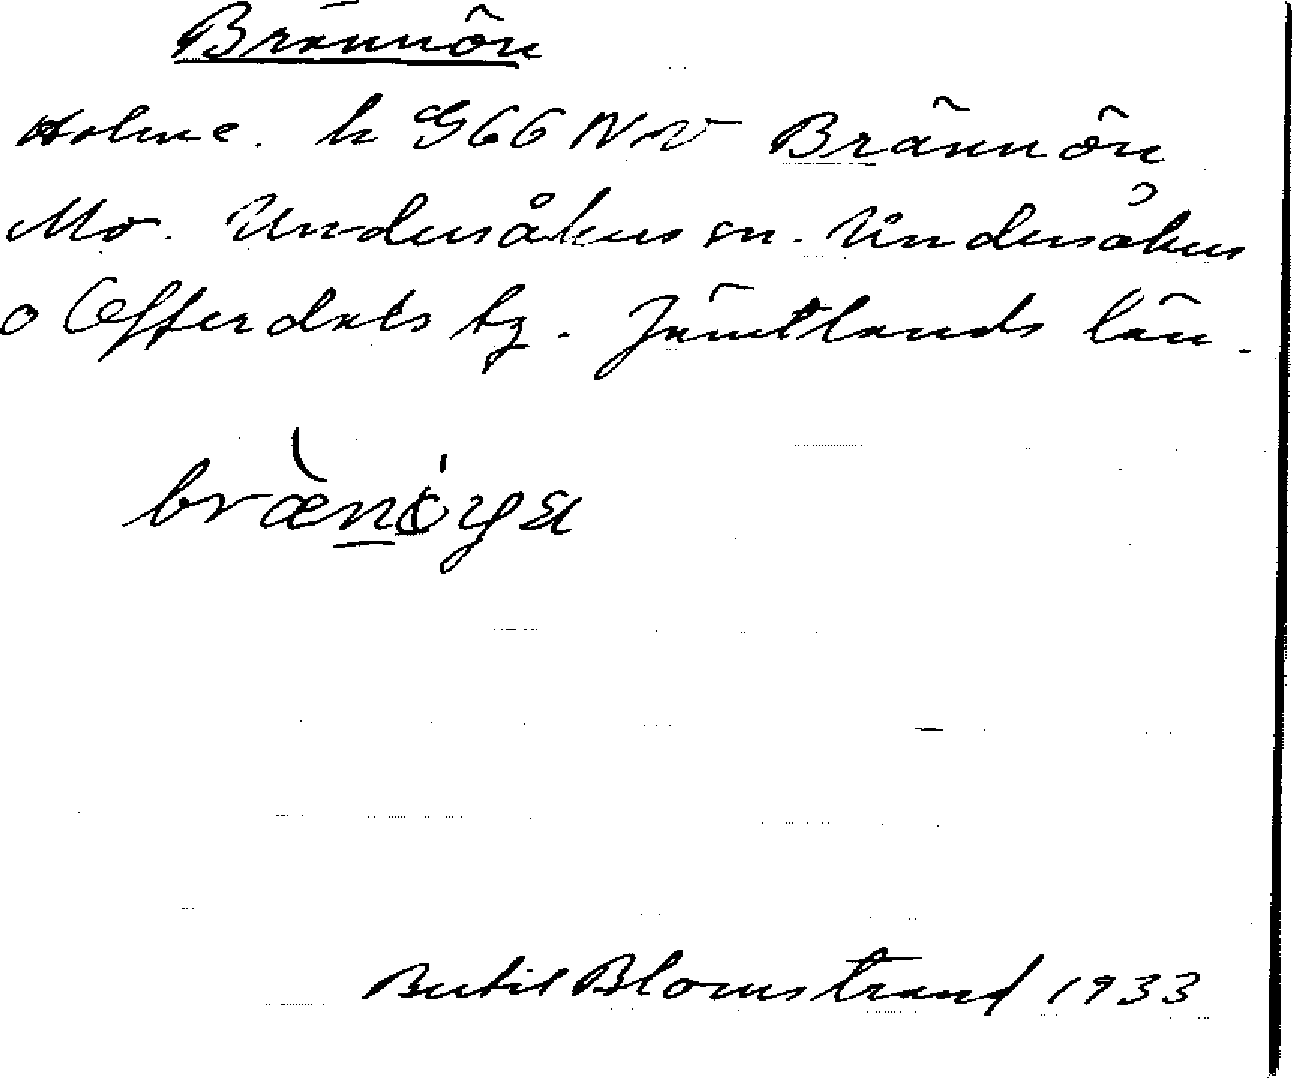 Brännön
Holme. k G66 NV Brännön
Mo. Undersåkers sn. Undersåkers
o Offerdals tg. Jämtlands län.
brænöya
Bertil Blomstrand 1933